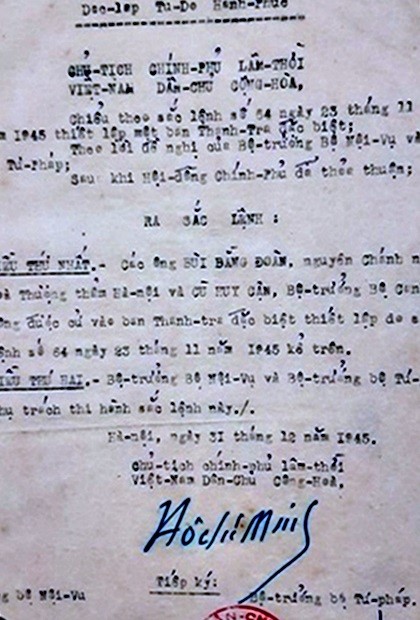 Độc-lập Tự-Do Hạnh-Phúc
CHỦ-TỊCH CHÍNH-PHỦ LÂM-THỜI
VIỆT-NAM DÂN-CHỦ CỘNG-HOÀ,
Chiếu theo sắc lệnh số 64 ngày 23 tháng 11
m 1945 thiết lập một ban Thanh-Tra đặc biệt;
Theo lời đề nghị của Bộ-trưởng Bộ Nội-Vụ và
Tư-Pháp;
Sau khi Hội-đồng Chính-Phủ đã thỏa thuận;
RA SẮC LỆNH :
IỀU THỨ NHẤT.- Các ông BÙI BẰNG ĐOÀN, nguyên Chánh n
oà Thượng thẩm Hà-nội và CÙ HUY CẬN, Bộ-trưởng Bộ Can
ng được cử vào ban Thanh-tra đặc biệt thiết lập do s
ệnh số 64 ngày 23 tháng 11 năm 1945 kể trên.
IỀU THỨ HAI.- Bộ-trưởng Bộ Nội-Vụ và Bộ-trưởng bộ Tư-
hụ trách thi hành sắc lệnh này./.
Hà-nội, ngày 31 tháng 12 năm 1945.
Chủ-tịch chính-phủ lâm-thời
Việt-Nam Dân-Chủ Cộng-Hoà,
HồChíMinh
Tiếp ký:
ng bộ Nội-Vụ Bộ-trưởng bộ Tư-pháp.